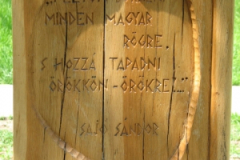 MINDEN MAGYAR
RÖGRE,
S HOZZÁ TAPADNI
ÖRÖKKÖN-ÖRÖKRE!..."
SAJÓ SÁNDOR